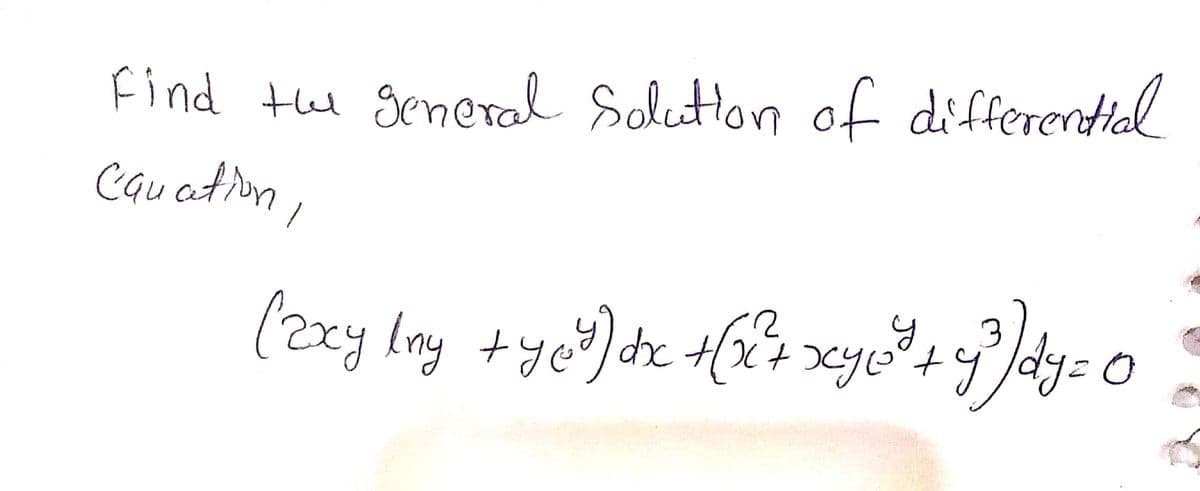 Find the general Solution of differential
equation,
(2xy lny + ye^y) dx + (x^2 + xye^y + y^3) dy = 0